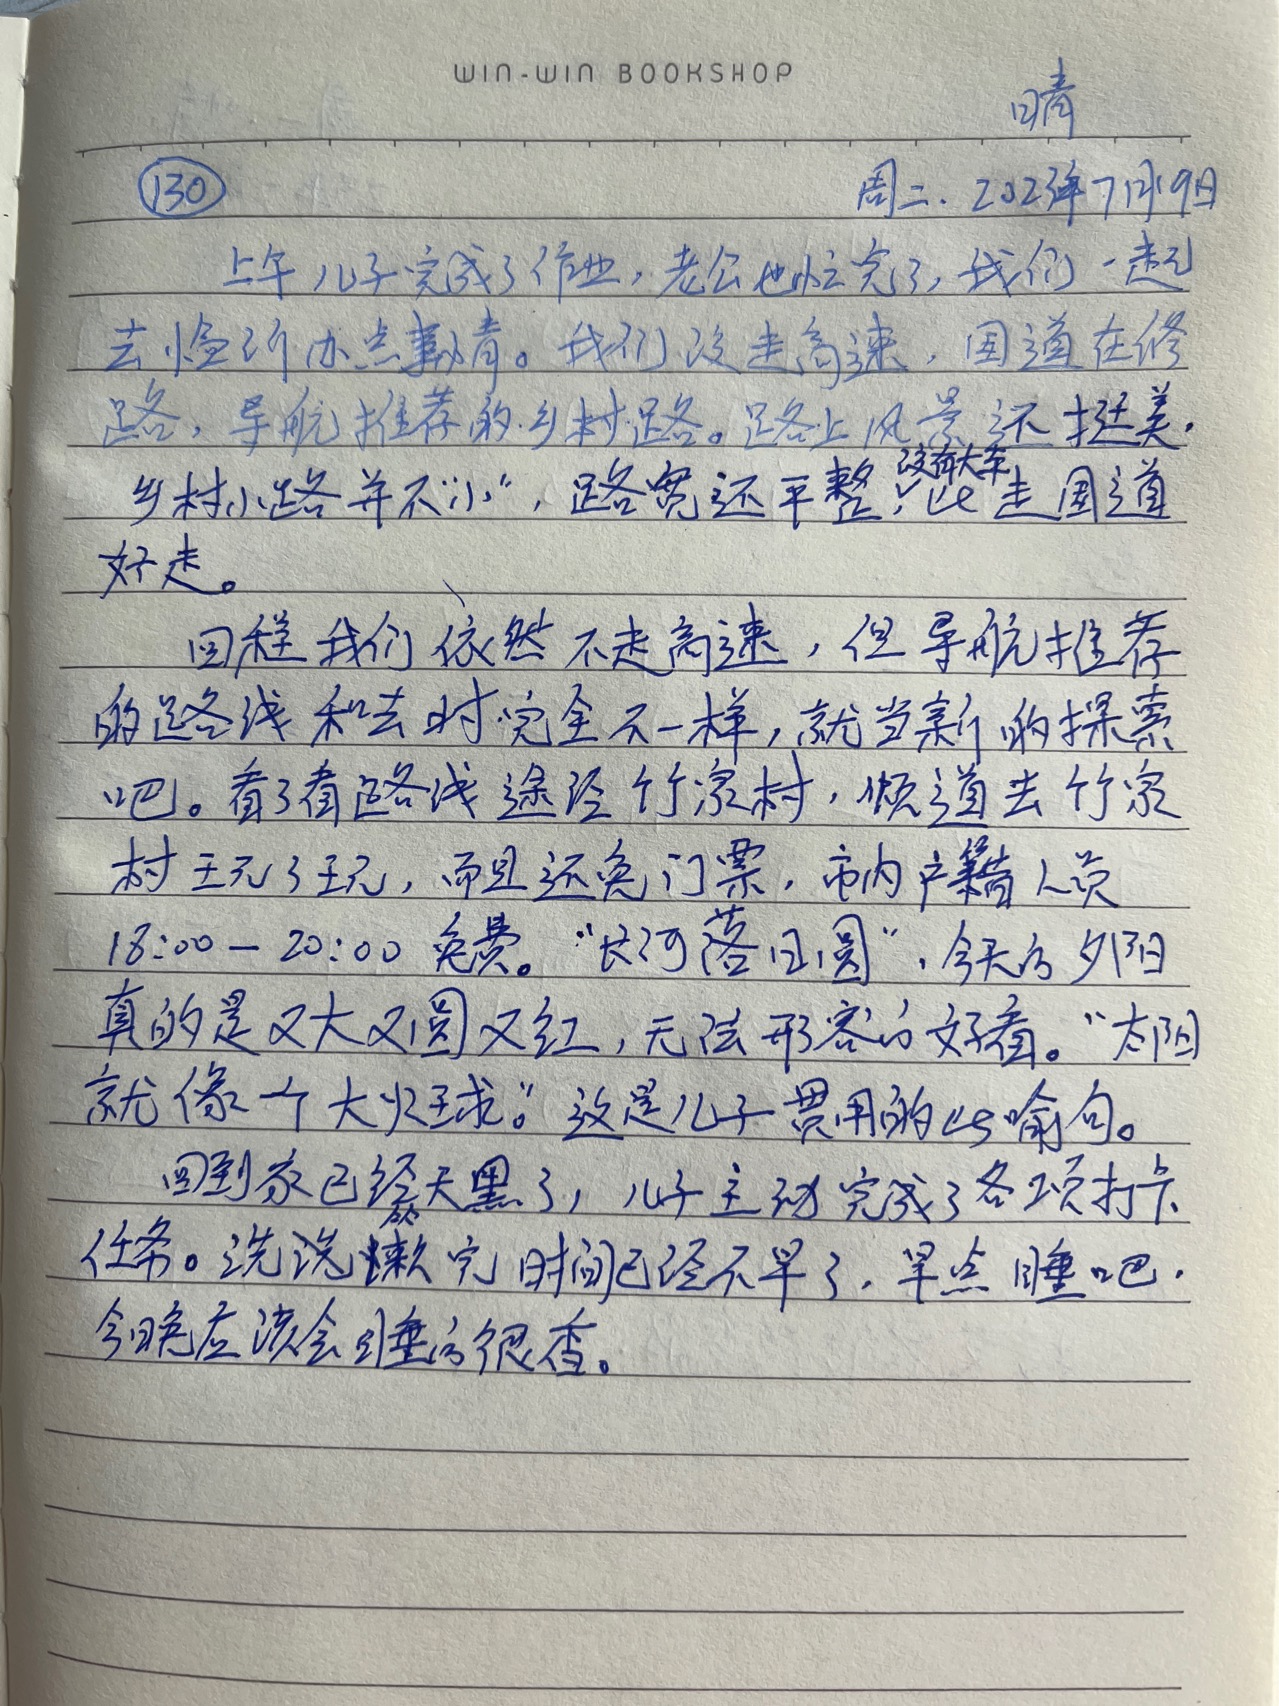 WIN-WIN BOOKSHOP
晴
130 周二. 2023年7月19日
上午儿子完成了作业,老公也忙完了,我们一起
去临沂办点事情。我们没走高速,国道在修
路,导航推荐的乡村路。路上风景还挺美.
乡村小路并不“小”,路宽还平整,没有大车,比走国道
好走。
回程我们依然不走高速,但导航推荐
的路线和去时完全不一样,就当新的探索
吧。看了看路线途经竹泉村,顺道去竹泉
村玩了玩,而且还免门票,市内户籍人员
18:00-20:00免费。“长河落日圆”,今天的夕阳
真的是又大又圆又红,无法形容的好看。“太阳
就像一个大火球”。这是儿子惯用的比喻句。
回到家已经天黑了,儿子主动完成了各项打卡
任务。洗洗漱完时间已经不早了.早点睡吧.
今晚应该会睡的很香。